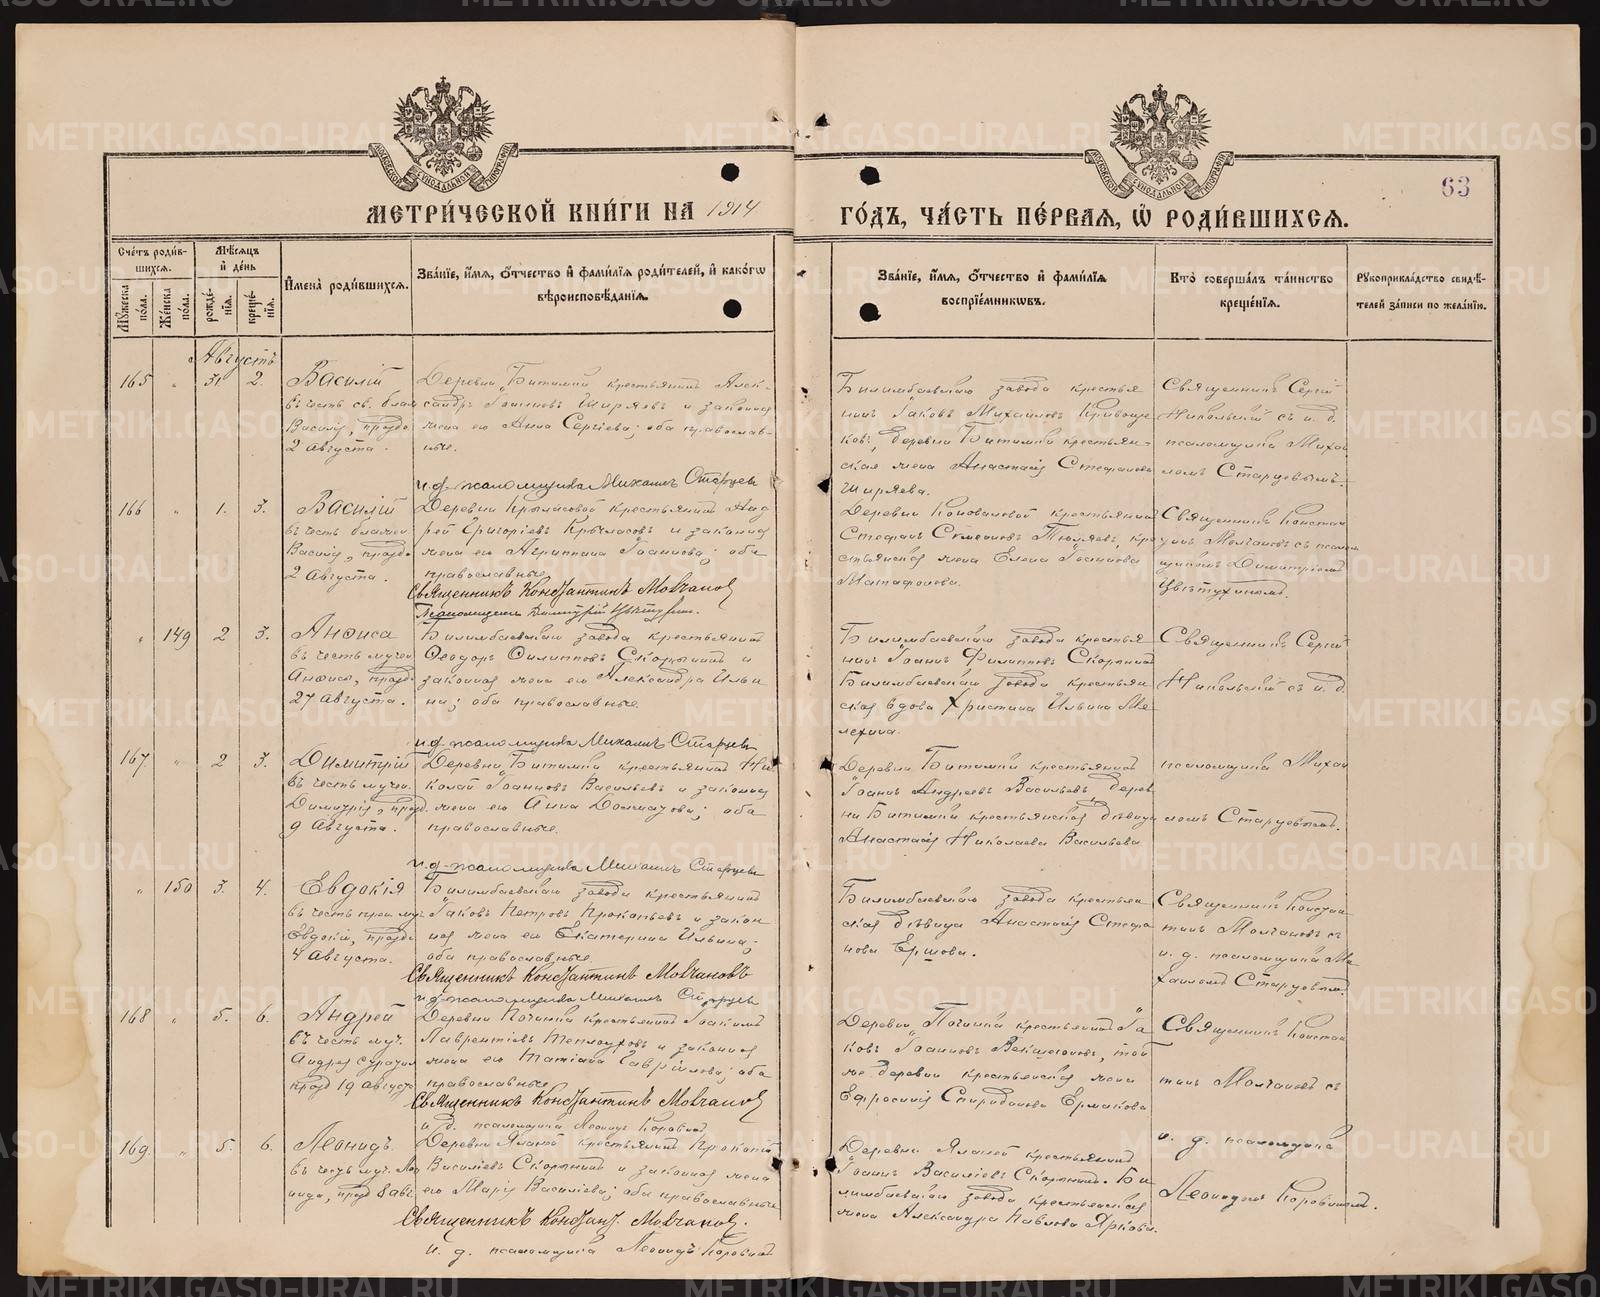 МЕТРИ́ЧЕСКОЙ КНИ́ГИ НА 1914
ГО́ДЪ, ЧА́СТЬ ПЕ́РВАЯ, Ѡ҆ РОДИ́ВШИХСЯ.
63
Сче́тъ роди́в-
шихся.
Мѣ́сяцъ
и҆ де́нь
Мꙋ́жеска по́ла.
Же́нска по́ла.
рожде́-
нїя.
креще́-
нїя.
И҆мена̀ роди́вшихся.
Зва́нїе, и҆́мя, ѻ҆́тчество и҆ фами́лїя роди́телей, и҆ како́гѡ
вѣроисповѣ́данїя.
Зва́нїе, и҆́мя, ѻ҆́тчество и҆ фами́лїя
воспрїе́мникѡвъ.
Кто̀ соверша́лъ та́инство
креще́нїя.
Рꙋкоприкла́дство свидѣ́-
телей за́писи по жела́нїю.
Августъ
165 " 31 2. Василій
въ честь св. блаж
Василія, праздн
2 Августа.
Деревни Битимки крестьянинъ Алек-
сандръ Іоанновъ Ширяевъ и законная
жена его Анна Сергіева; оба православ-
ные.
и.д. псаломщика Михаилъ Старцевъ
Билимбаевскаго завода крестья
нинъ Іаковъ Михайловъ Кривоще
ковъ, деревни Битимки крестьян-
ская жена Анастасія Стефанова
Ширяева.
Священникъ Сергій
Никольскій съ и. д.
псаломщика Миха
ломъ Старцевымъ.
166 " 1. 3. Василій
въ честь блажен
Василія, праздн
2 Августа.
Деревни Крыласовой крестьянинъ Анд
рей Григоріевъ Крыласовъ и законная
жена его Агриппина Іоаннова; оба
православные.
Священникъ Константинъ Молчановъ
Псаломщикъ Димитрій Цвѣтухинъ.
Деревни Коноваловой крестьянинъ
Стефанъ Симеоновъ Тюляевъ, кре
стьянская жена Елена Іоаннова
Матафонова.
Священникъ Констан
тинъ Молчановъ съ псалом
щикомъ Димитріемъ
Цвѣтухинымъ.
" 149 2 3. Анѳиса
въ честь мучен
Анѳисы, празд
27 Августа.
Билимбаевскаго завода крестьянинъ
Ѳеодоръ Филипповъ Скорынинъ и
законная жена его Александра Ильи
на; оба православные.
и.д. псаломщика Михаилъ Старцевъ
Билимбаевскаго завода крестья
нинъ Іоаннъ Филипповъ Скорынинъ
Билимбаевскаго завода крестьян
ская вдова Христина Ильина Ме
лехина.
Священникъ Сергій
Никольскій съ и. д.
167. " 2 3. Димитрій
въ честь мучен
Димитрія, празд
9 Августа.
Деревни Битимки крестьянинъ Ни
колай Іоанновъ Васильевъ и законная
жена его Анна Домнатова; оба
православные.
и.д. псаломщика Михаилъ Старцевъ
Деревни Битимки крестьянинъ
Іоаннъ Андреевъ Васильевъ дерев
ни Битимки крестьянская дѣвица
Анастасія Николаева Васильева
псаломщика Миха
ломъ Старцевымъ.
" 150 3. 4. Евдокія
въ честь преп. му
Евдокіи, праздн
4 Августа.
Билимбаевскаго завода крестьянинъ
Іаковъ Петровъ Прокопьевъ и закон
ная жена его Екатерина Ильина;
оба православные.
Священникъ Константинъ Молчановъ
и.д. псаломщика Михаилъ Старцевъ
Билимбаевскаго завода крестьян
ская дѣвица Анастасія Стефа
нова Ершова.
Священникъ Констан
тинъ Молчановъ съ
и. д. псаломщика Ми
хаиломъ Старцевымъ.
168 " 5. 6. Андрей
въ честь муч.
Андрея Стратил
празд 19 Августа
Деревни Починка крестьянинъ Іоакимъ
Лаврентіевъ Теплоуховъ и законная
жена его Татіана Гавріилова; оба
православные
Священникъ Константинъ Молчановъ
и. д. псаломщика Леонидъ Коровинъ
Деревни Починка крестьянинъ Іа
ковъ Іоанновъ, той
же деревни крестьянская жена
Ефросинія Спиридонова Ермакова
Священникъ Констан
тинъ Молчановъ съ
169. " 5. 6. Леонидъ.
въ честь муч. Лео
нида, празд 8 авг.
Деревни Яланки крестьянинъ Прокопій
Василіевъ Скорынинъ и законная жена
его Марія Василіева; оба православные
Священникъ Констант. Молчановъ.
и. д. псаломщика Леонидъ Коровинъ
Деревни Яланки крестьянинъ
Іоаннъ Василіевъ Скорынинъ. Би
лимбаевскаго завода крестьянская
жена Александра Павлова Яркова.
и. д. псаломщика
Леонидомъ Коровинымъ.
METRIKI.GASO-URAL.RU